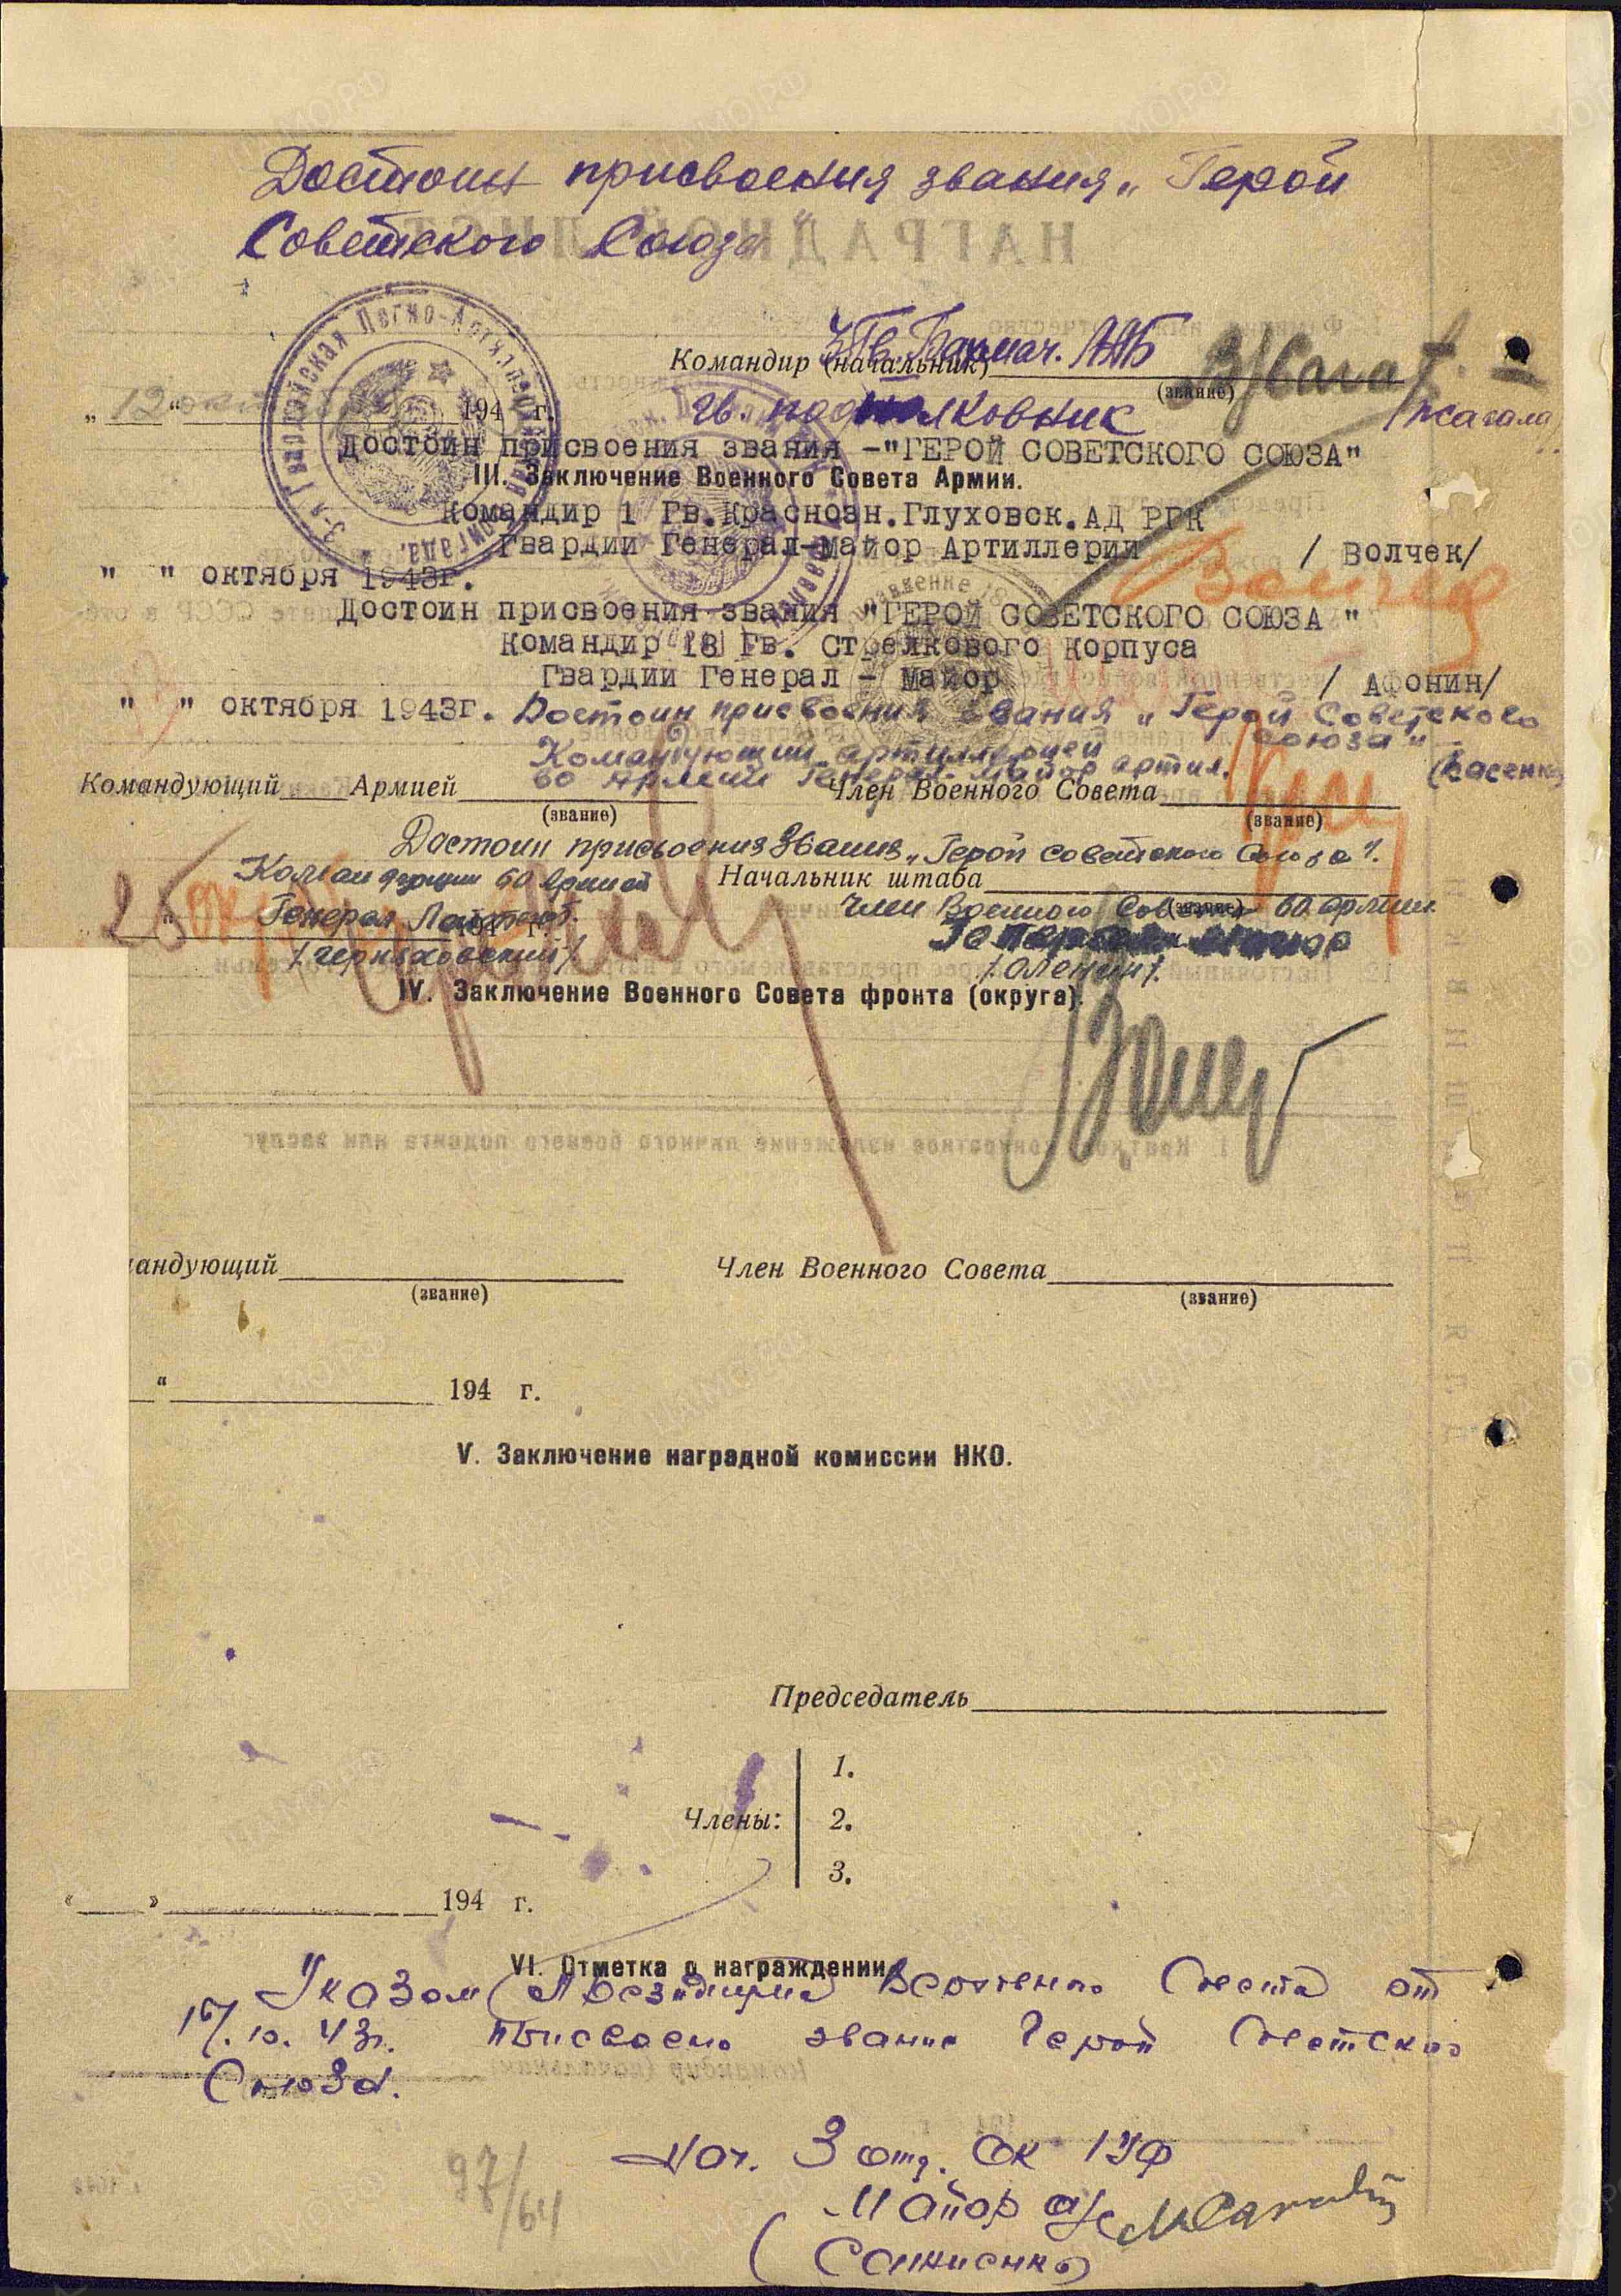 Достоин присвоения звания „Герой
Советского Союза
Командир (начальник) 3 Гв. Бахмач. ЛАБ
(звание)
„12" окт 194 г.
Гв. подполковник
/Жагала/
достоин присвоения звания -"ГЕРОЙ СОВЕТСКОГО СОЮЗА"
III. Заключение Военного Совета Армии.
Командир 1 Гв.Краснозн.Глуховск.АД РГК
Гвардии Генерал-майор Артиллерии / Волчек/
" " октября 1943г.
Достоин присвоения звания "ГЕРОЙ СОВЕТСКОГО СОЮЗА "
Командир 18 Гв. Стрелкового Корпуса
Гвардии Генерал - майор / Афонин/
" " октября 1943г. Достоин присвоения звания „Герой Советского
Союза"
Командующий артиллерией
60 Армии Генерал-майор артил.
Командующий Армией
(звание)
Член Военного Совета
(звание)
Достоин присвоения звания „Герой Советского Союза".
Командующий 60 Армией
Начальник штаба
(звание)
Генерал Лейтенант.
Член Военного Совета 60 армии
25 194 г.
Генерал майор
/Черняховский/
/Оленин/.
IV. Заключение Военного Совета фронта (округа).
андующий
(звание)
Член Военного Совета
(звание)
" 194 г.
V. Заключение наградной комиссии НКО.
Председатель
Члены:
1.
2.
3.
« » 194 г.
VI. Отметка о награждении
Указом Президиума Верховного Совета от
.10.43г. присвоено звание Герой Советского
Союза.
Нач. 3 отд. ОК 1УФ
Майор а/с
97/64
3-я Гвардейская Легко-Артиллерийская бригада